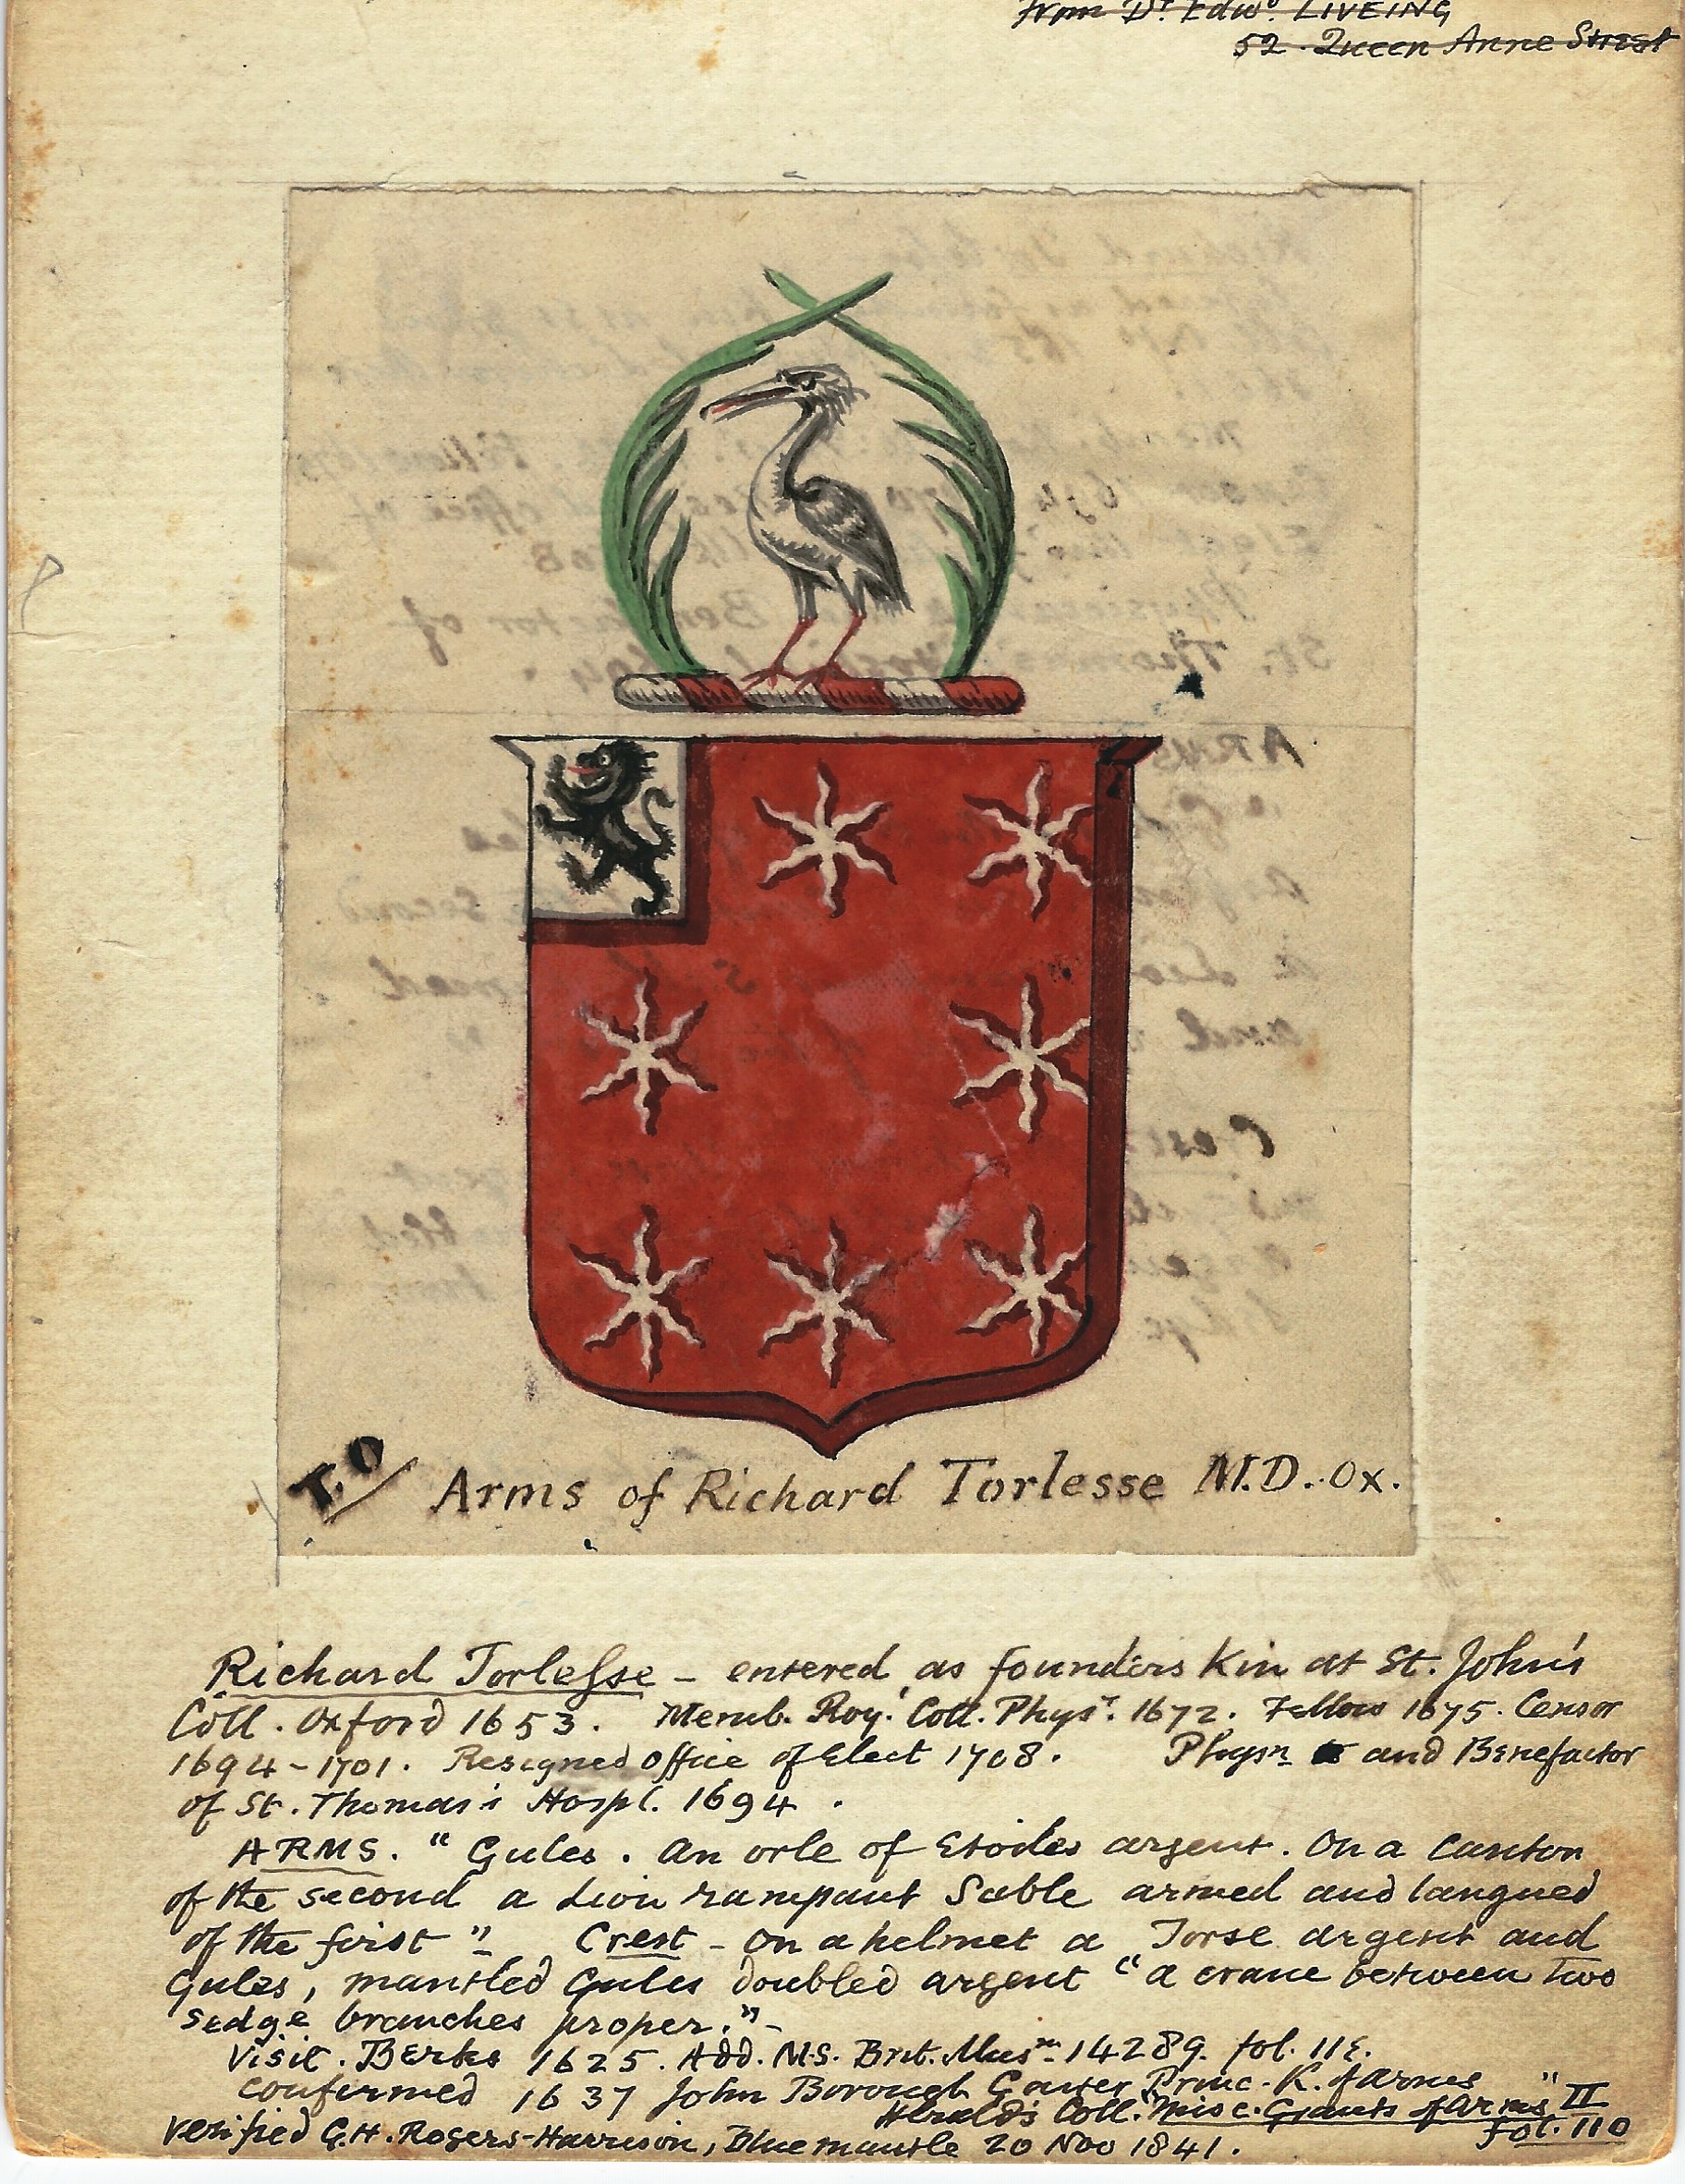 from Dr. Edwd. LIVEING
52. Queen Anne Street
T.O
Arms of Richard Torlesse M.D. Ox.
Richard Torleſse – entered as founders Kin at St. John's
Coll. Oxford 1653. Memb. Roy. Coll. Phys. 1672. Fellow 1675. Censor
1694–1701. Resigned office of Elect 1708. Physn and Benefactor
of St. Thomas's Hospl. 1694.
ARMS. "Gules. An orle of Etoiles argent. On a Canton
of the second a Lion rampant Sable armed and langued
of the first" Crest – On a helmet a Torse argent and
Gules, mantled Gules doubled argent "a crane between two
sedge branches proper." –
Visit. Berks 1625. Add. M.S. Brit. Musm. 14289. fol.
confirmed 1637 John Borough Garter Princ. K. of Armes
Herald's Coll. "Misc. Grants of Arms" II
fol. 110
Verified G.H. Rogers-Harrison, Bluemantle 20 Nov 1841.